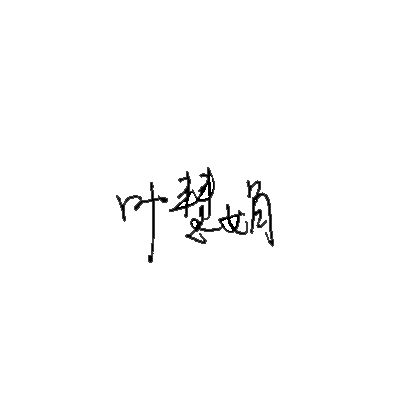 叶慧娟